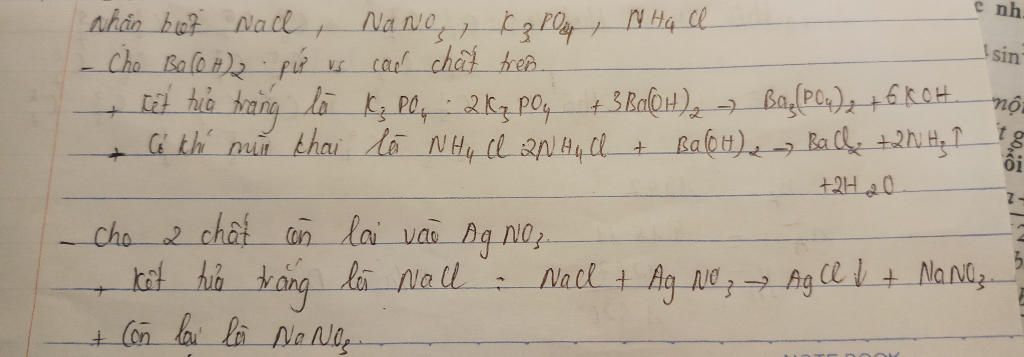 Nhận biết NaCl, NaNO3, K3PO4, NH4Cl
- Cho Ba(OH)2 pứ vs các chất trên.
+ Kết tủa trắng là K3PO4 : 2K3PO4 + 3Ba(OH)2 → Ba3(PO4)2 + 6KOH.
+ Có khí mùi khai là NH4Cl 2NH4Cl + Ba(OH)2 → BaCl2 + 2NH3↑
+2H2O.
- Cho 2 chất còn lại vào AgNO3.
+ Kết tủa trắng là NaCl : NaCl + AgNO3 → AgCl↓ + NaNO3.
+ Còn lại là NaNO3.
c nh
sin
mộ
t g
ôi
NOTE BOOK